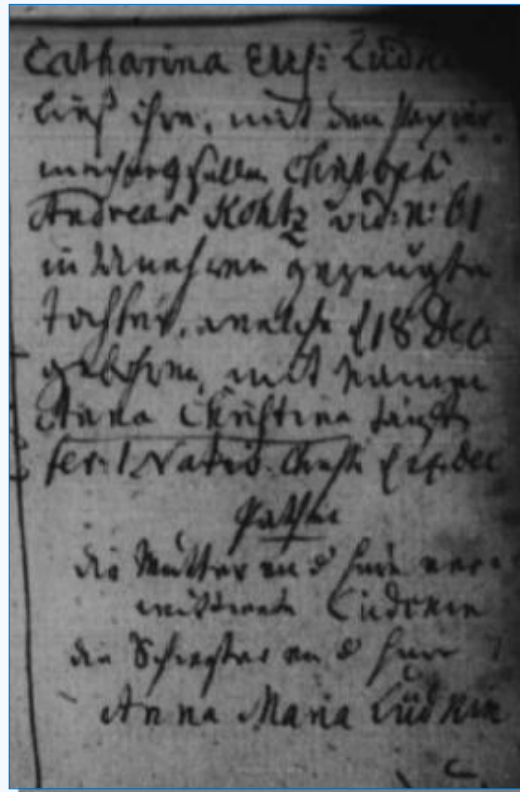 Catharina Elis: Lüdke
ließ ihre, mit dem Papier
machergesellen Christoph
Andreas Kohtz vid: n: 61
in Unehren gezeugte
Tochter, welche d 18 Dec
gebohren, mit Namen
Anna Christina taufen
fer: 1 Nativ. Christi d 25. Dec
Pathen
die Mutter an d Hure ver
wittwete Lüdkein
die Schwester an d Hure
Anna Maria Lüdkin